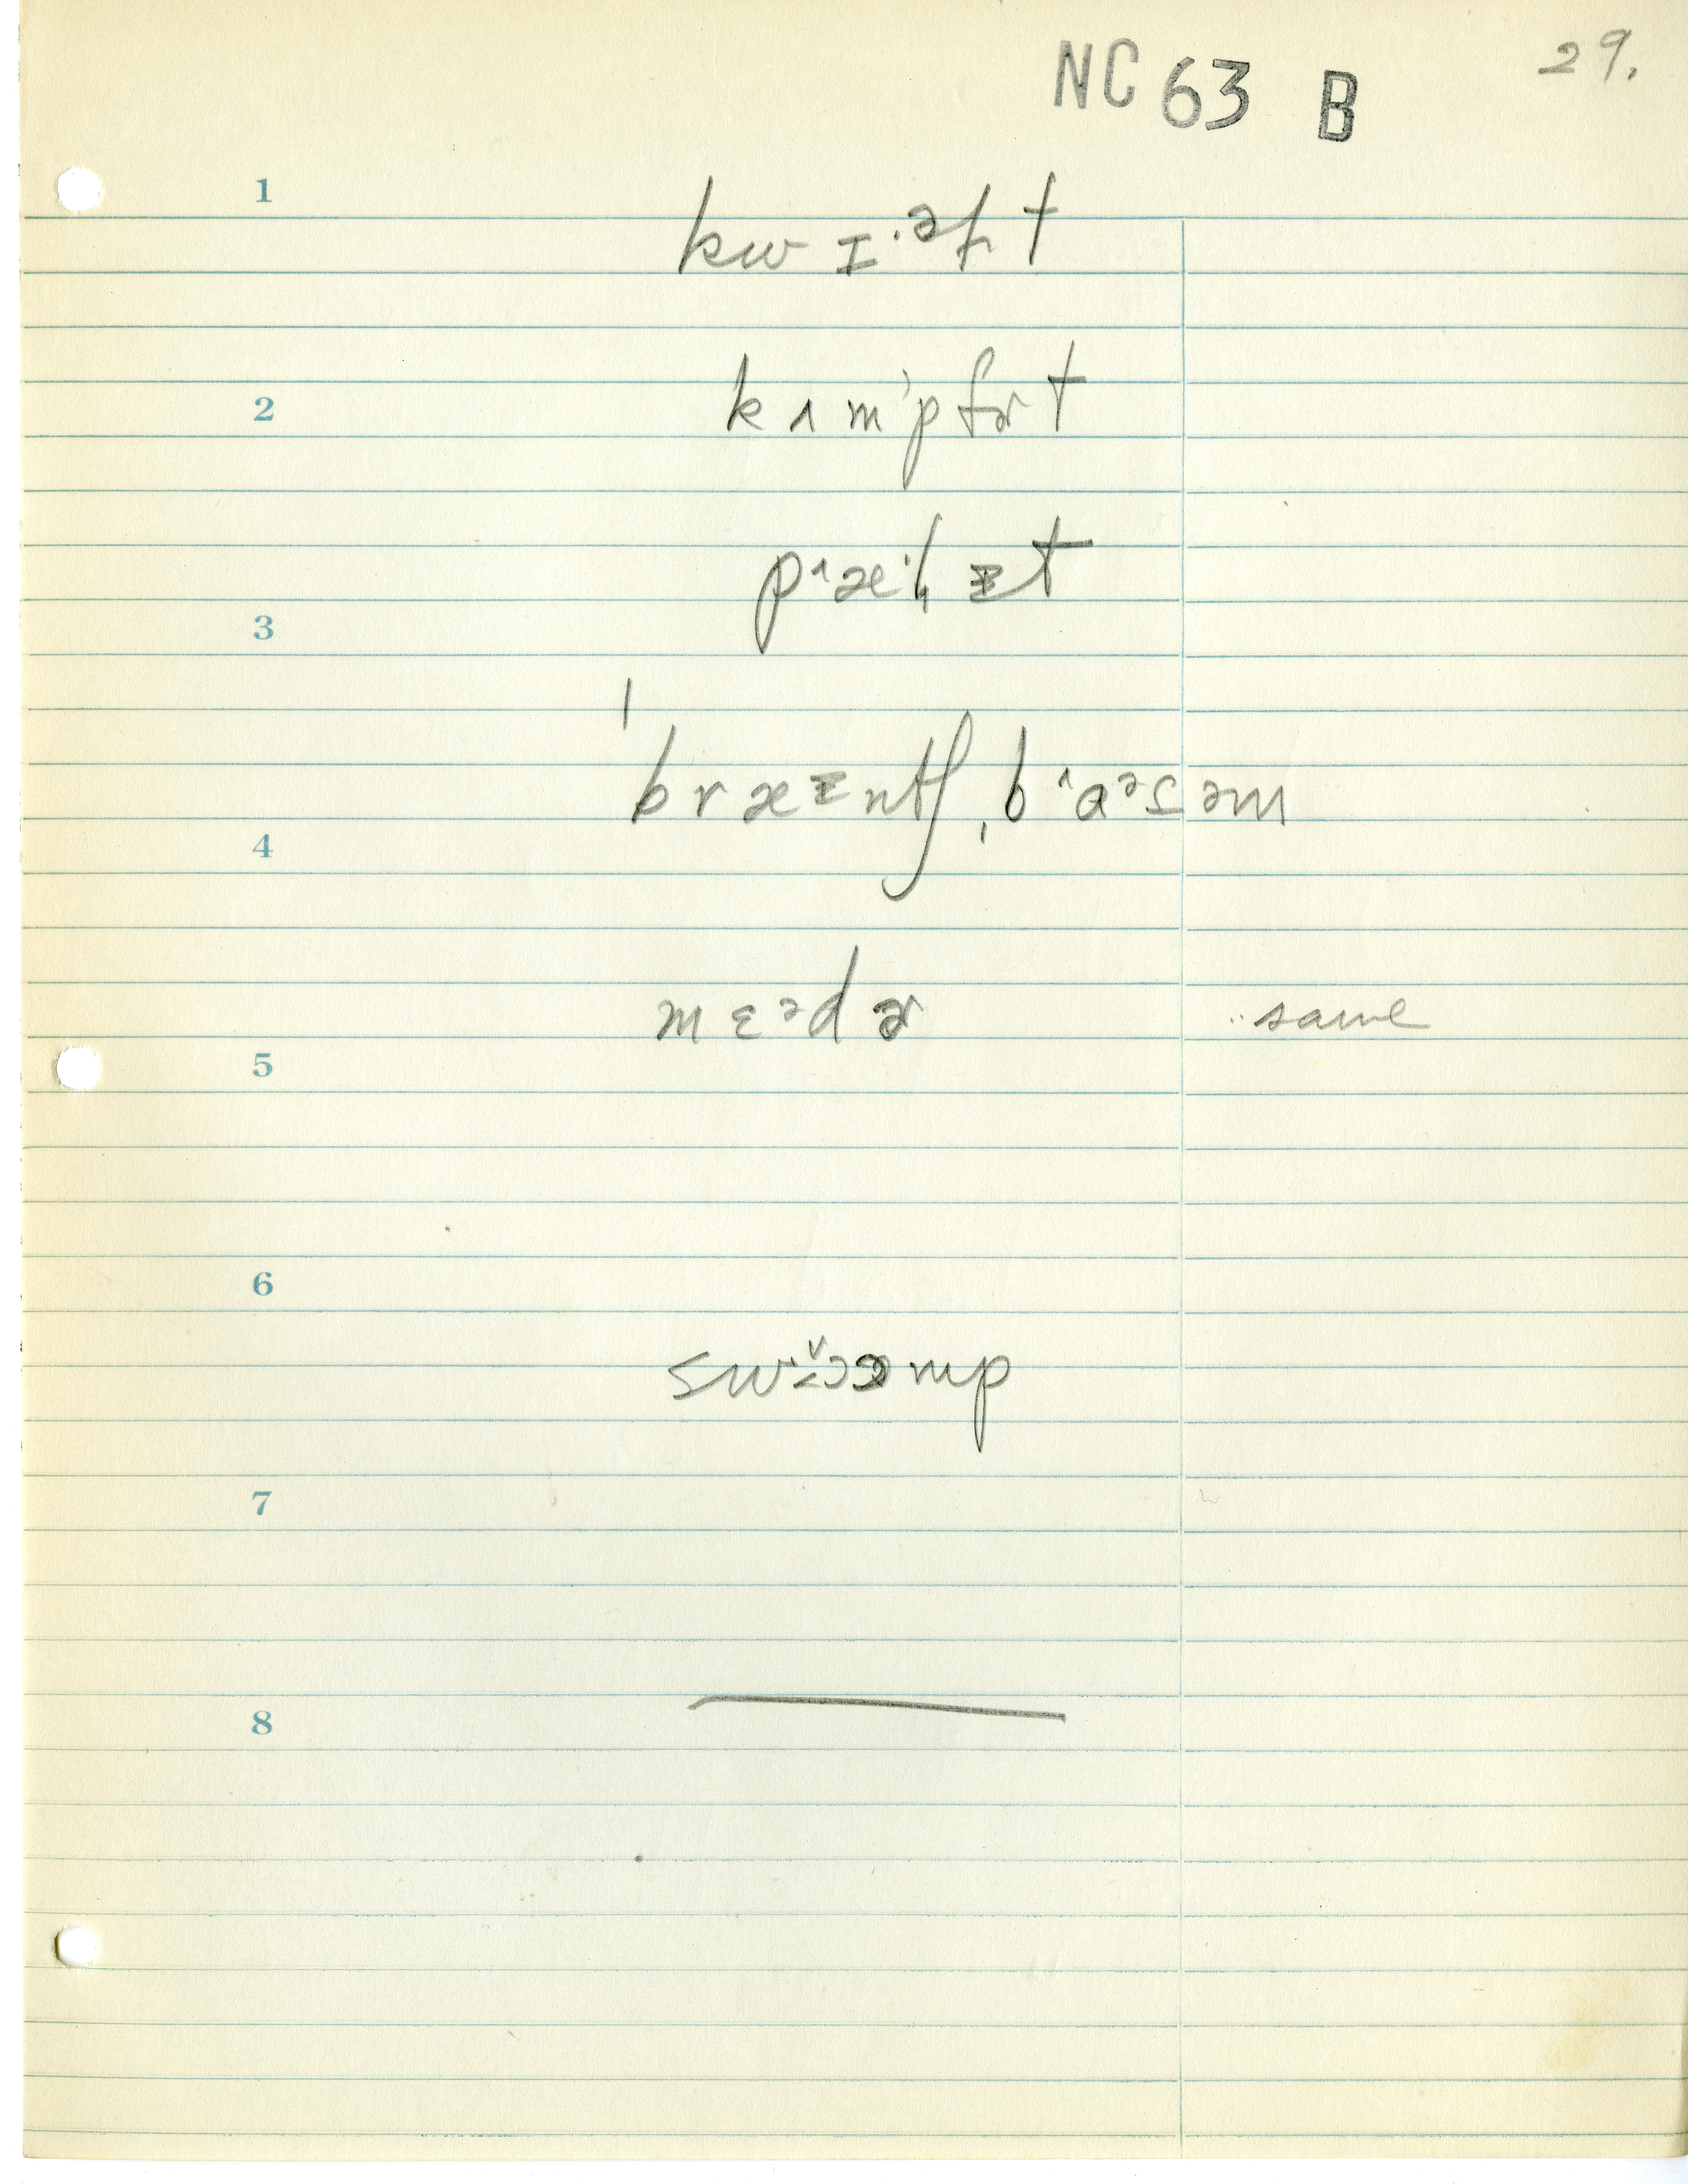 NC 63 B 29.
1
kw ɪ·ᵊɫt
2
kʌm'pfɚt
pˆæˑlɪ̵t
3
ˈbræᵻntʃ, ˌbˆɑᵊsəm
4
mɛᵊdɚ ..same
5
6
swɔəmp
7
8